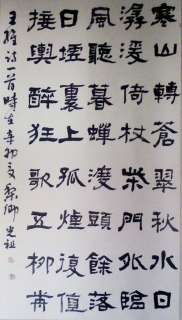 寒山轉蒼翠秋水日
潺湲倚杖柴門外臨
風聽暮蟬渡頭餘落
日墟裏上孤煙復值
接輿醉狂歌五柳前
王維詩一首時在辛卯